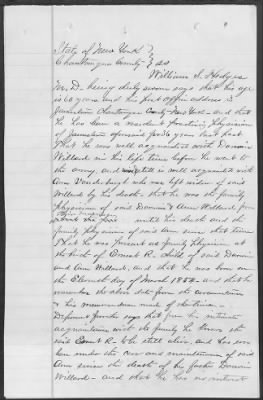 State of New York }
Chautauqua County } ss
William S. Hedges
M.D. being duly sworn says that his age
is 60 years and his post office address is
Jamestown Chautauqua County New York and that
he has been a resident practicing physician
of Jamestown aforesaid for the years last past
That he was well acquainted with Dennis
Willard in his life time before he went to
the army, and still is well acquainted with
Ann who was left widow of said
Willard by his death that he was the family
physician of said Dennis & Ann Willard from
until his death and the
family physician of said Ann since that time
That he was present as family physician at
the birth of Ernest R. child of said Dennis
and Ann Willard, and that he was born on
the day of March 1858 and that he
remember the above date from the
& his memorandum made at the time
Deponent further says that from his intimate
acquaintance with the family he knows the
said Ernest R. to be still alive, and has ever
been under the care and maintenance of said
Ann since the death of his father Dennis
Willard and that he has no interest